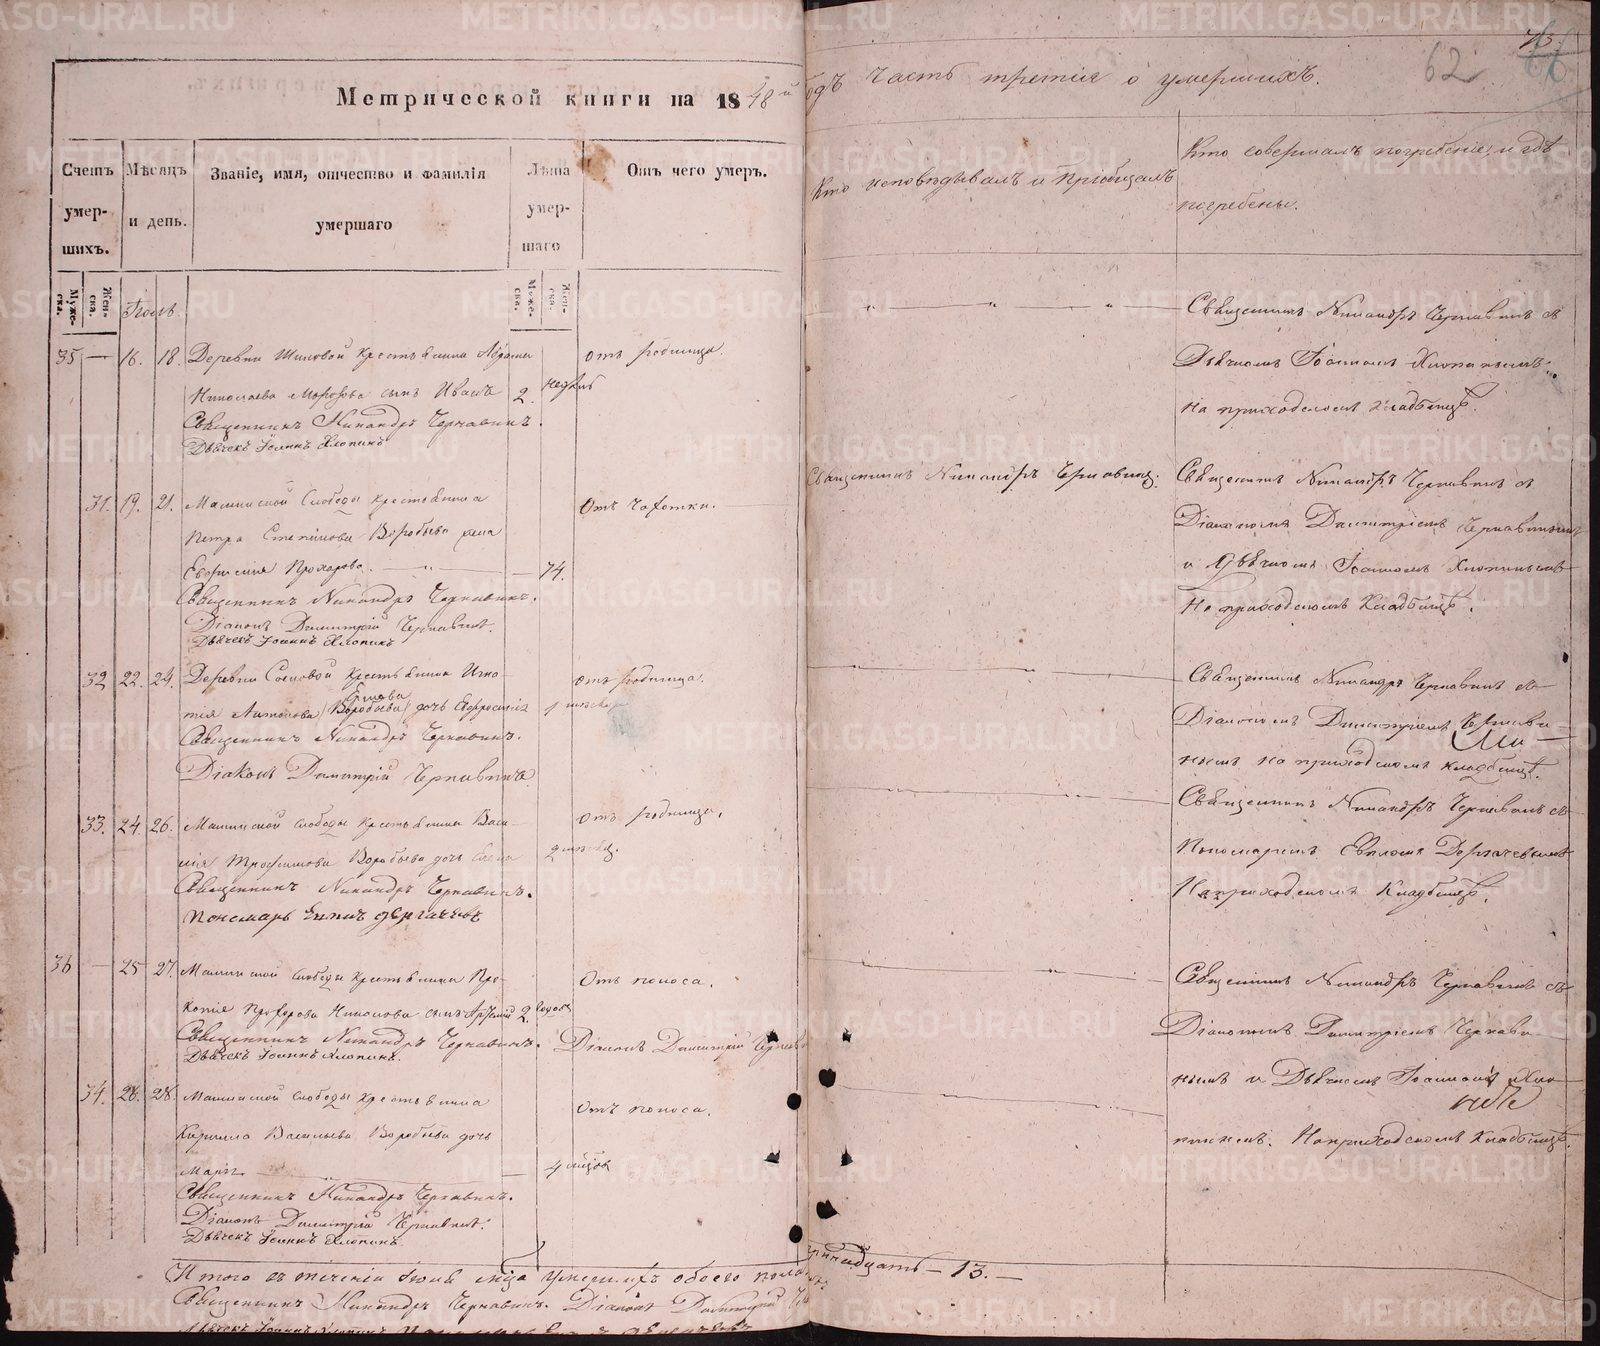 Метрической книги на 1848й годъ часть третія о умершихъ.
62
Счетъ умер-шихъ.
Мѣсяцъ и день.
Званіе, имя, отчество и фамилія умершаго
Лѣта умер-шаго
Отъ чего умеръ.
Кто исповѣдывалъ и пріобщалъ
Кто совершалъ погребеніе и гдѣ
погребены.
Муже-ска.
Жен-ска.
Муже-ска.
Жен-ска.
Іюль.
35 — 16. 18. Деревни Шиловой крестьянина
Николаева Морозова сынъ Иванъ 2. недѣль
отъ родимца.
Священникъ Никандръ Чернавинъ.
Дьячекъ Іоаннъ Хлопинъ
Священникъ Никандръ Чернавинъ съ
Дьячкомъ Іоанномъ Хлопинымъ
на приходскомъ кладбищѣ.
31. 19. 21. Маминской Слободы крестьянина
Петра Степанова Воробьева жена
Евфимія Прохорова. — 74.
Отъ чахотки.
Священникъ Никандръ Чернавинъ.
Діаконъ Димитрій Чернавинъ.
Дьячекъ Іоаннъ Хлопинъ
Священникъ Никандръ Чернавинъ.
Священникъ Никандръ Чернавинъ съ
Діакономъ Димитріемъ Чернавинымъ
и Дьячкомъ Іоанномъ Хлопинымъ
На приходскомъ Кладбищѣ.
32 22. 24. Деревни Сосновой крестьянина Игна-
тія Антонова Воробьева дочь
отъ родимца.
Священникъ Никандръ Чернавинъ.
Діаконъ Димитрій Чернавинъ
Священникъ Никандръ Чернавинъ съ
Діакономъ Димитріемъ Чернави-
нымъ на приходскомъ кладбищѣ.
33. 24. 26. Маминской слободы крестьянина Васи-
лія Трофимова Воробьева дочь Елена
отъ родимца.
Священникъ Никандръ Чернавинъ.
Пономарь
Священникъ Никандръ Чернавинъ съ
Пономаремъ
На приходскомъ Кладбищѣ.
36 — 25 27. Маминской слободы крестьянина Про-
копія Прохорова Никонова сынъ Арсеній 2. годовъ
Отъ поноса.
Священникъ Никандръ Чернавинъ.
Дьячекъ Іоаннъ Хлопинъ.
Діаконъ Димитрій
Священникъ Никандръ Чернавинъ съ
Діакономъ Димитріемъ Чернави-
нымъ и Дьячкомъ Іоанномъ Хло-
пинымъ. На приходскомъ Кладбищѣ.
34. 26. 28. Маминской слободы крестьянина
Кирилла Васильева Воробьева дочь
Марія — 4 мѣсяцовъ
Отъ поноса.
Священникъ Никандръ Чернавинъ.
Діаконъ Димитрій Чернавинъ.
Дьячекъ Іоаннъ Хлопинъ.
Итого въ теченіи Іюля мѣца умершихъ обоего пола тринадцать — 13. —
Священникъ Никандръ Чернавинъ. Діаконъ Димитрій
Дьячекъ Іоаннъ Хлопинъ
METRIKI.GASO-URAL.RU